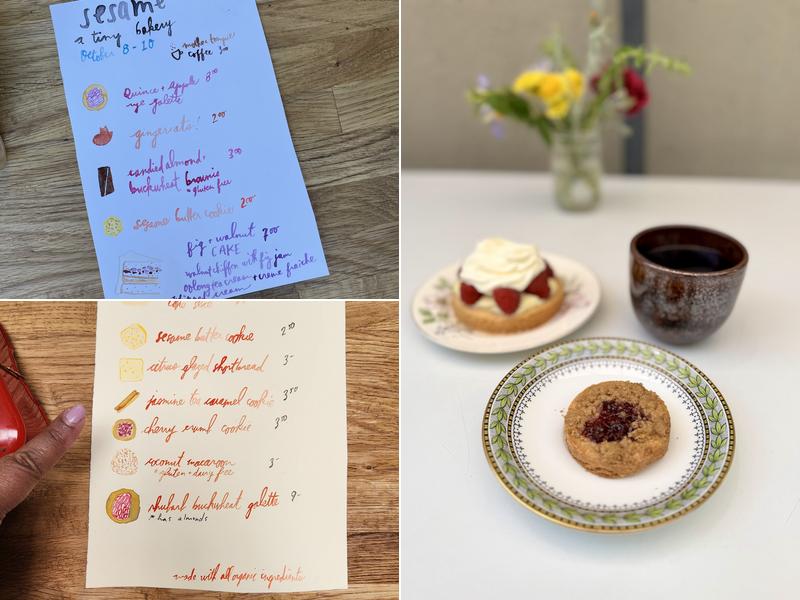 sesame
a tiny bakery
October 8-10
coffee 3.00
Quince + apple 8.00
rye galette
gingercats! 2.00
candied almond + 3.00
buckwheat brownie
*gluten free
sesame butter cookie 2.00
fig + walnut 7.00
CAKE
walnut chiffon with fig jam
oolong tea cream + creme fraiche
sesame butter cookie 2.50
citrus glazed shortbread 3-
jasmine tea caramel cookie 3.50
cherry crumb cookie 3.50
coconut macaroon 3-
*gluten + dairy free
rhubarb buckwheat galette 9-
* has almonds
made with all organic ingredients